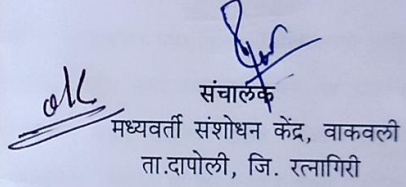 संचालक
ok मध्यवर्ती संशोधन केंद्र, वाकवली
ता.दापोली, जि. रत्नागिरी